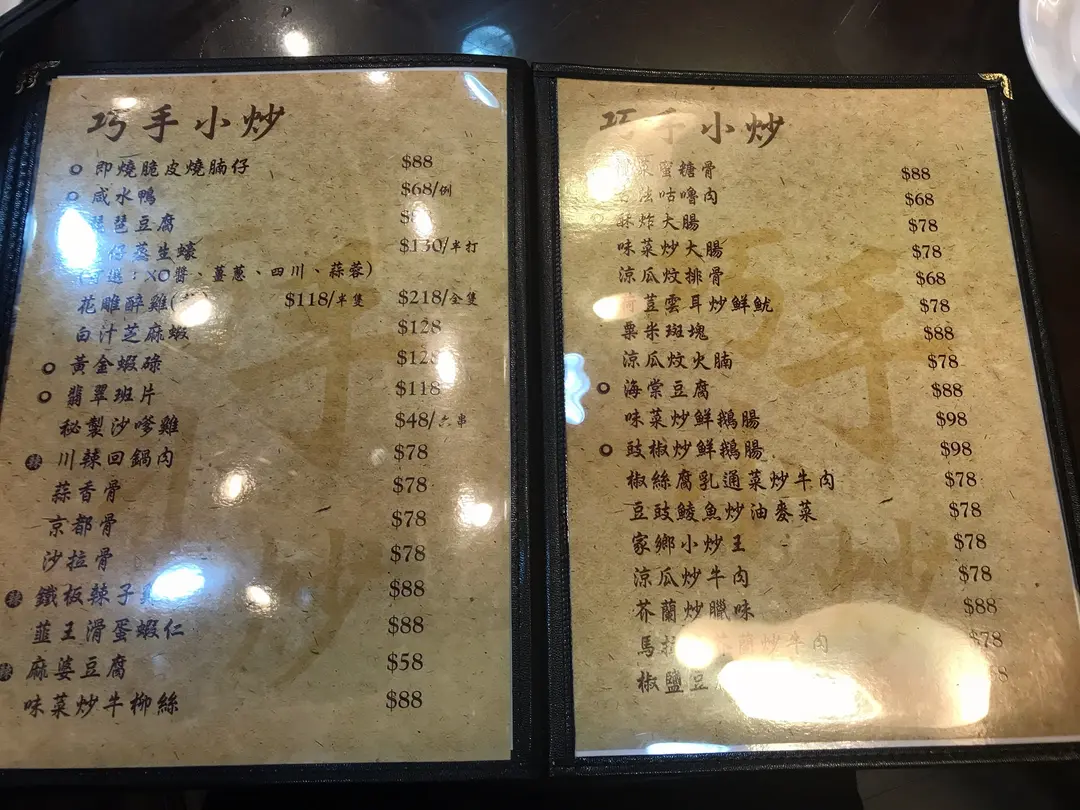 巧手小炒
即燒脆皮燒腩仔 $88
咸水鴨 $68/例
琵琶豆腐
仔蒸生蠔 $130/半打
選:XO醬、薑蔥、四川、蒜蓉)
花雕醉雞 $118/半隻 $218/全隻
白汁芝麻蝦 $128
黃金蝦碌
翡翠班片 $118
秘製沙嗲雞 $48/六串
辣 川辣回鍋肉 $78
蒜香骨 $78
京都骨 $78
沙拉骨 $78
辣 鐵板辣子 $88
韮王滑蛋蝦仁 $88
辣 麻婆豆腐 $58
味菜炒牛柳絲 $88
巧手小炒
菜蜜糖骨 $88
法咕嚕肉 $68
酥炸大腸 $78
味菜炒大腸 $78
涼瓜炆排骨 $68
荳雲耳炒鮮魷 $78
粟米斑塊 $88
涼瓜炆火腩 $78
海棠豆腐 $88
味菜炒鮮鵝腸 $98
豉椒炒鮮鵝腸 $98
椒絲腐乳通菜炒牛肉 $78
豆豉鯪魚炒油麥菜 $78
家鄉小炒王 $78
涼瓜炒牛肉 $78
芥蘭炒臘味 $88
馬 蘭炒牛肉 $78
椒鹽豆